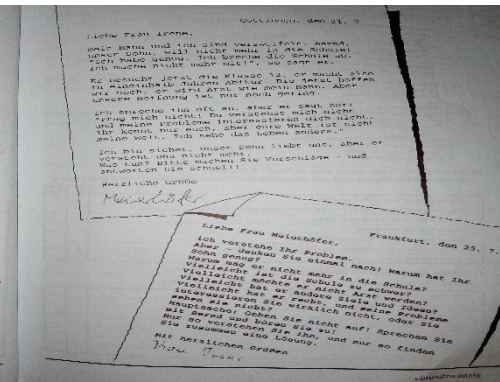 Göttingen, den 21. 7.
Liebe Frau Irene,
mein Mann und ich sind verzweifelt. Bernd,
unser Sohn, will nicht mehr in die Schule!
"Ich habe genug. Ich breche die Schule ab.
Ich mache nicht mehr mit!", so sagt er.
Er besucht jetzt die Klasse 12, er macht also
in eineinhalb Jahren Abitur. Bis jetzt hofften
wir noch, er wird Arzt wie mein Mann. Aber
unsere Hoffnung ist nur noch gering.
Ich spreche ihn oft an, aber er sagt nur:
"Frag mich nicht! Du verstehst mich nicht,
und meine Probleme interessieren dich nicht.
Ihr kennt nur euch, aber eure Welt ist nicht
meine Welt. Ich sehe das Leben anders."
Ich bin sicher, unser Sohn liebt uns, aber er
versteht uns nicht mehr.
Was tun? Bitte machen Sie Vorschläge - und
antworten Sie schnell!
Herzliche Grüße
Meierhöfer
Frankfurt, den 25. 7.
Liebe Frau Meierhöfer,
ich verstehe Ihr Problem.
Aber - denken Sie einmal nach! Warum hat Ihr
Sohn genug?
Warum mag er nicht mehr in die Schule?
Vielleicht ist die Schule zu schwer?
Vielleicht möchte er nicht Arzt werden?
Vielleicht hat er andere Ziele und Ideen?
Vielleicht hat er recht, und seine Probleme
interessieren Sie wirklich nicht, oder Sie
sehen sie nicht?
Hauptsache: Geben Sie nicht auf! Sprechen Sie
mit Bernd und hören Sie zu!
Nur so verstehen Sie ihn, und nur so finden
Sie zusammen eine Lösung.
Mit herzlichen Grüßen
einundzwanzig